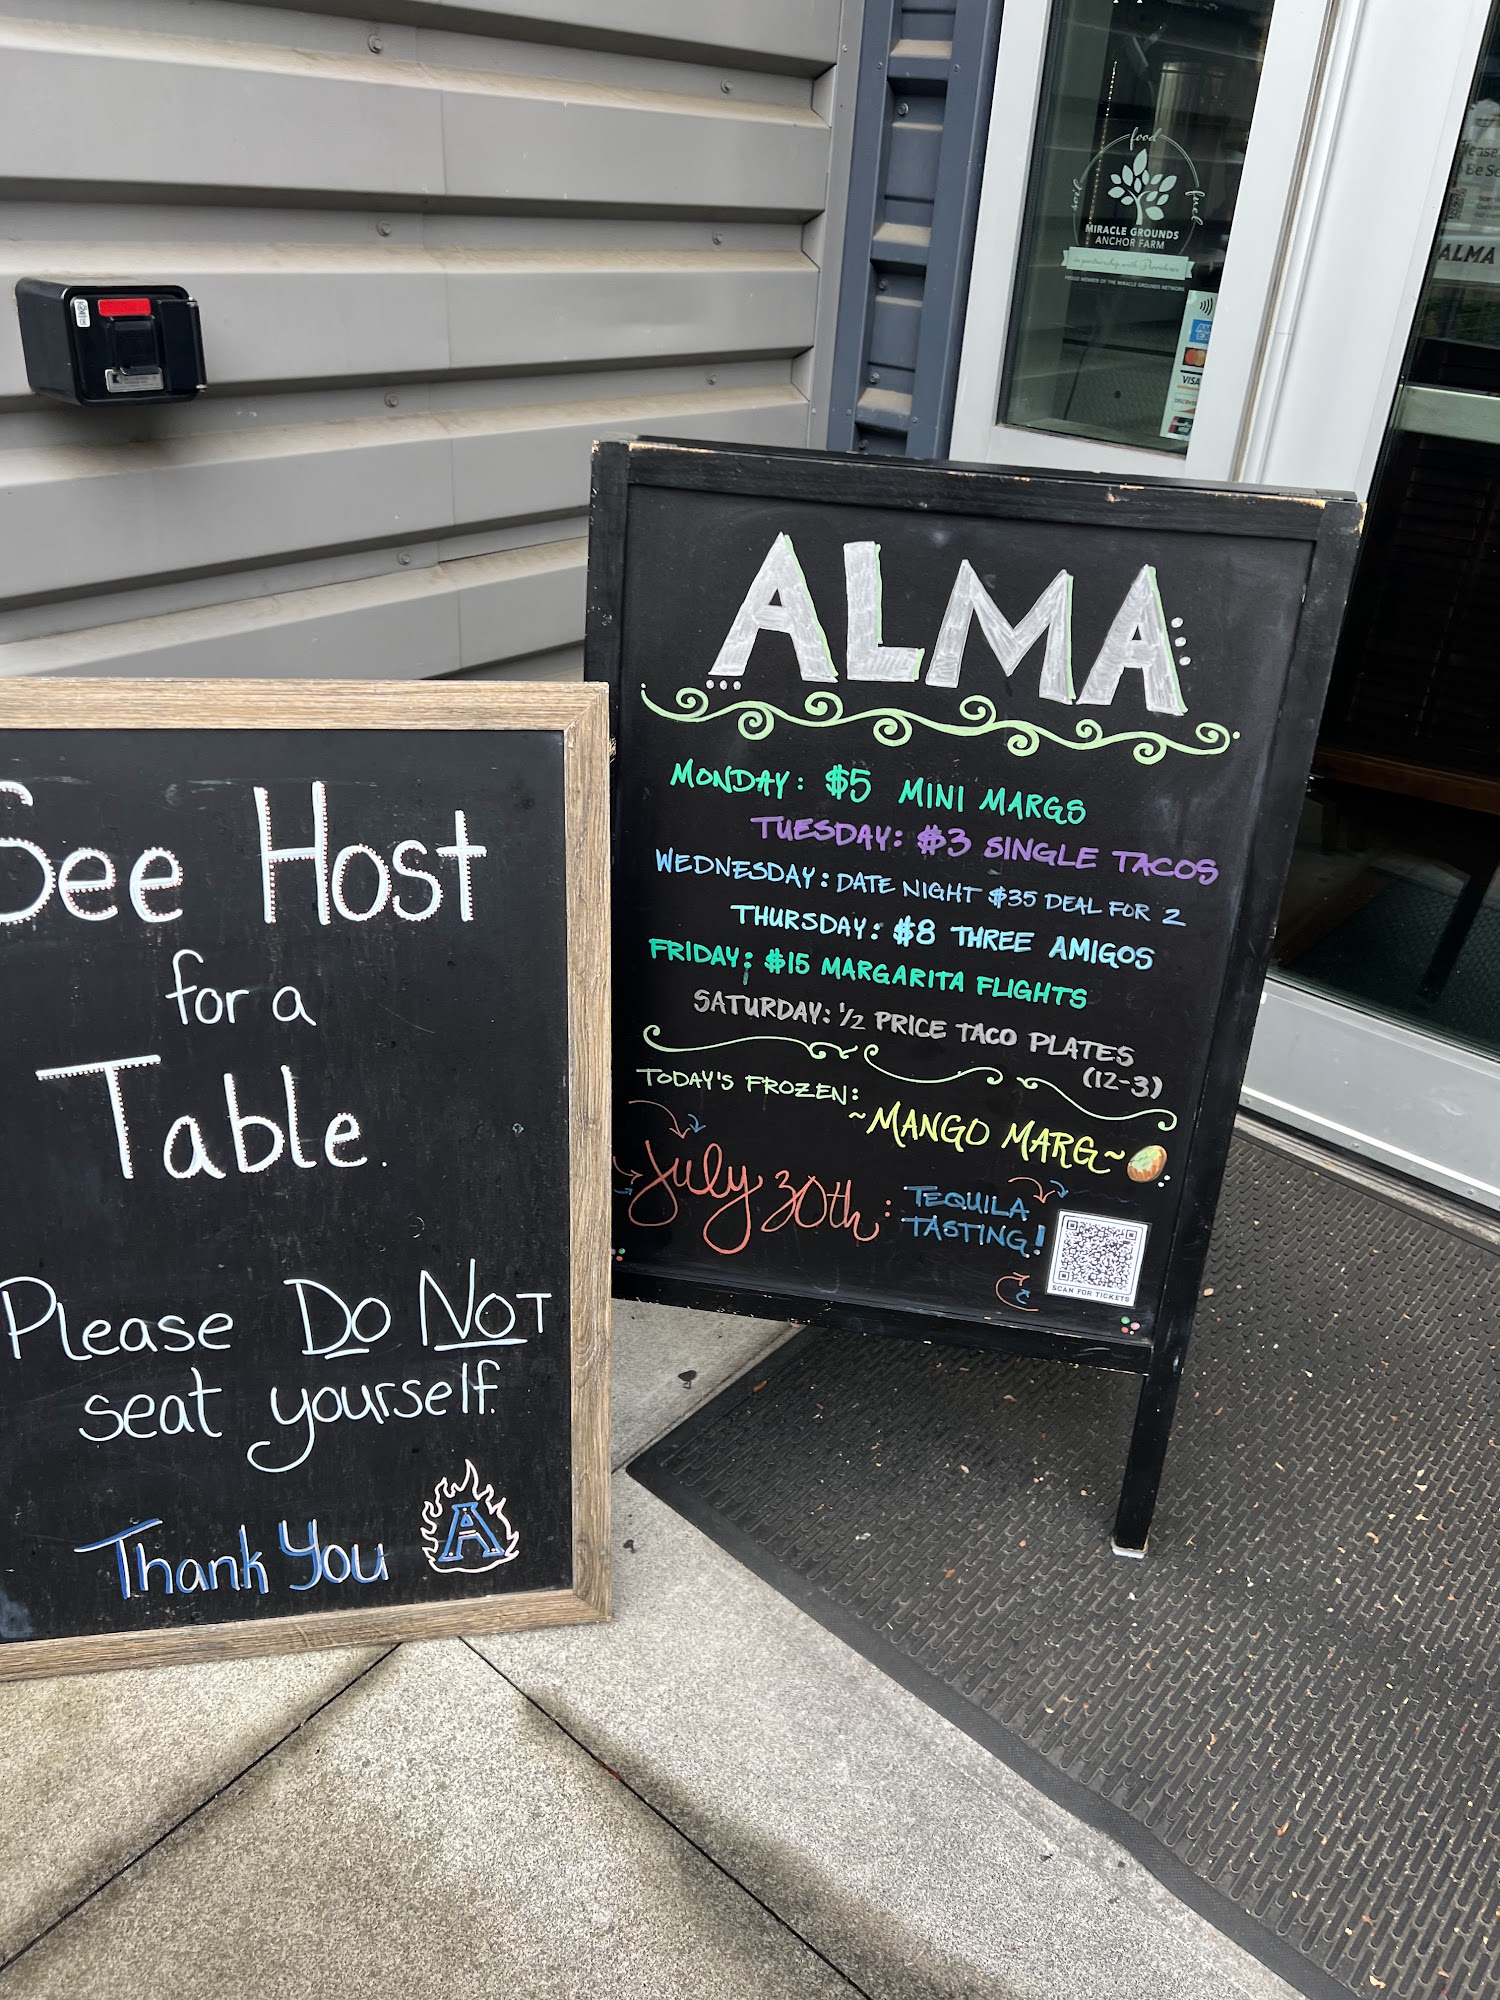 food
soil
fuel
MIRACLE GROUNDS
ANCHOR FARM
in partnership with Providence
PROUD MEMBER OF THE MIRACLE GROUNDS NETWORK
VISA
DISCOVER
Please
Be Se
ALMA
ALMA
MONDAY: $5 MINI MARGS
TUESDAY: $3 SINGLE TACOS
WEDNESDAY: DATE NIGHT $35 DEAL FOR 2
THURSDAY: $8 THREE AMIGOS
FRIDAY: $15 MARGARITA FLIGHTS
SATURDAY: 1/2 PRICE TACO PLATES
(12-3)
TODAY'S FROZEN:
~MANGO MARG~
July 30th: TEQUILA
TASTING!
SCAN FOR TICKETS
See Host
for a
Table.
Please DO NOT
seat yourself.
Thank You
A